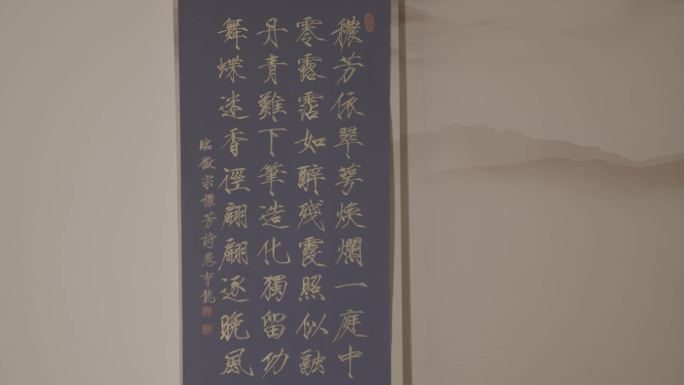 穠芳依翠萼煥爛一庭中
零露霑如醉殘霞照似融
丹青難下筆造化獨留功
舞蝶迷香徑翩翩逐晚風
臨徽宗穠芳詩卷李龍